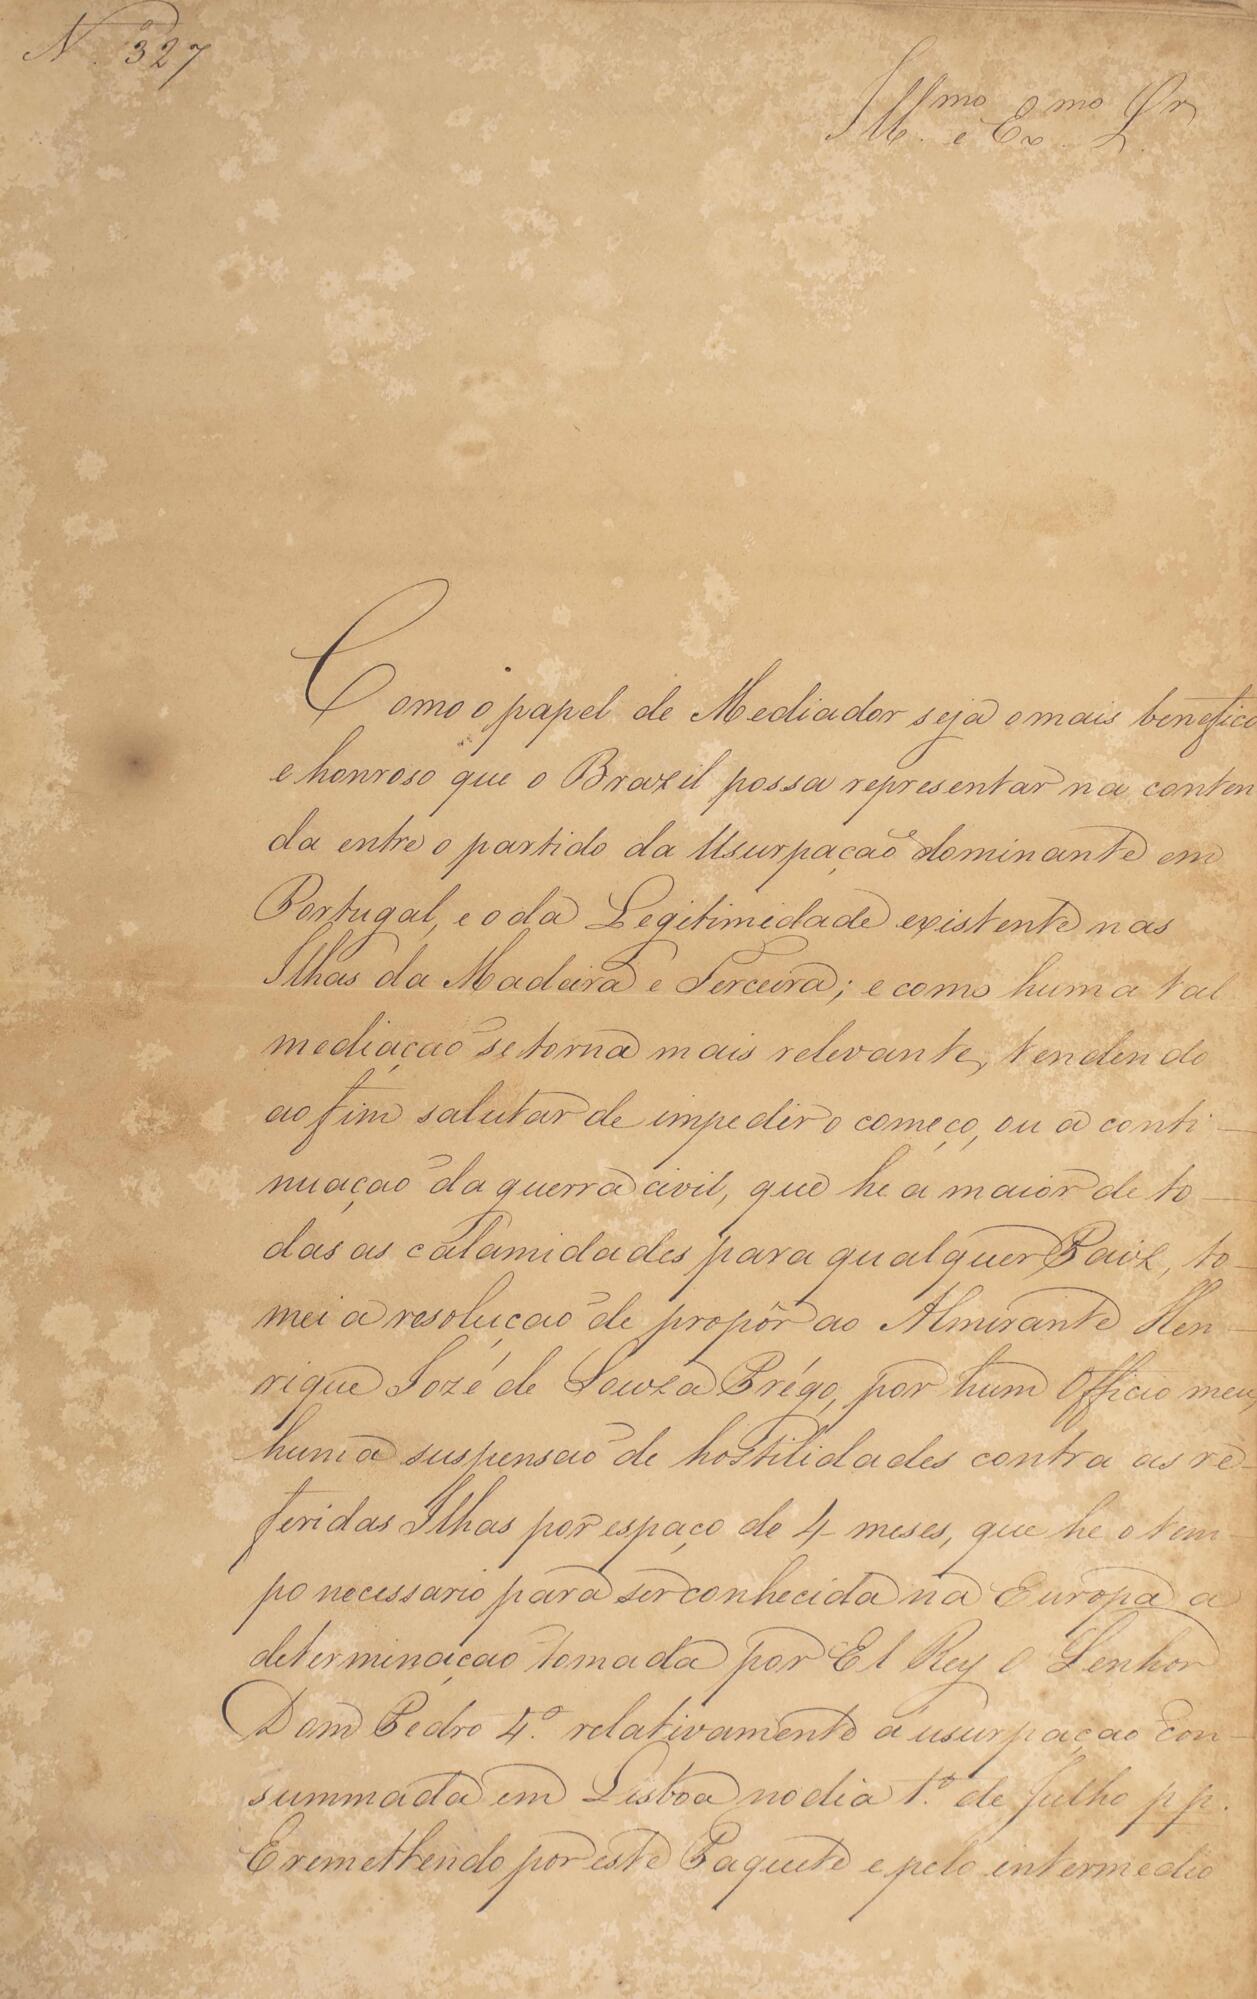 N.º 327
Ill.mo e Ex.mo Sr.
Como o papel de Mediador seja o mais benefico
e honroso que o Brazil possa representar na conten
da entre o partido da Usurpação dominante em
Portugal, e o da Legitimidade existente nas
Ilhas da Madeira e Terceira; e como huma tal
mediação se torna mais relevante, tendendo
ao fim salutar de impedir o começo, ou a conti-
nuação da guerra civil, que he a maior de to-
das as calamidades para qualquer Paiz, to-
mei a resolução de propôr ao Almirante Hen-
rique Jozé de Souza Prégo, por hum Officio meu,
huma suspensão de hostilidades contra as re-
feridas Ilhas por espaço de 4 meses, que he o tem-
po necessario para ser conhecida na Europa a
determinação tomada por El Rey O Senhor
Dom Pedro 4.º relativamente á usurpação con-
summada em Lisboa no dia 1.º de Julho pp.
E remettendo por este Paquete e pelo intermedio